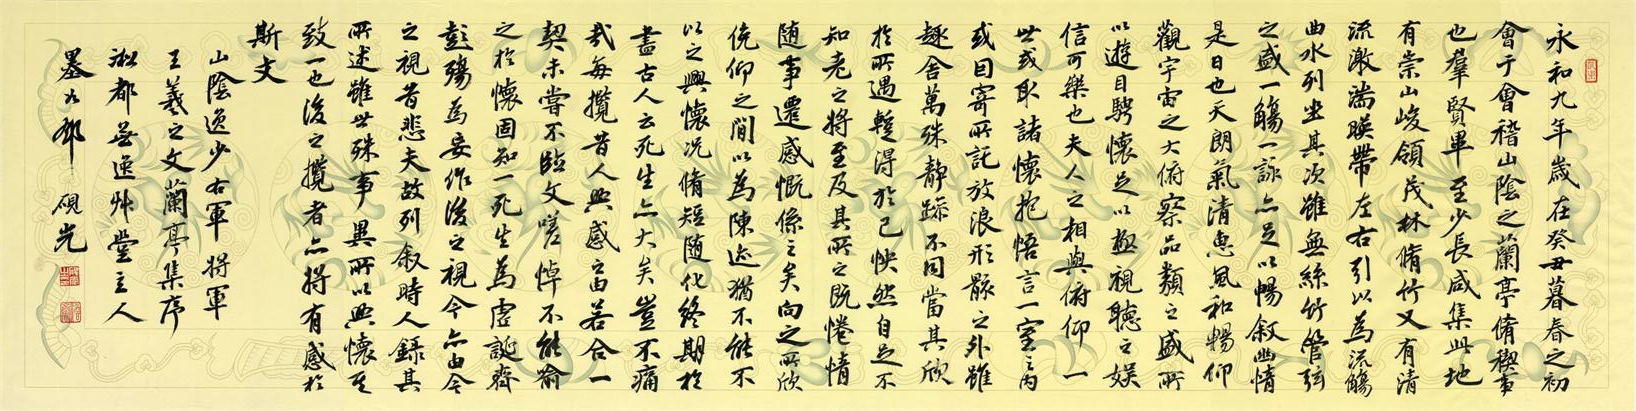 永和九年歲在癸丑暮春之初
會于會稽山陰之蘭亭脩稧事
也羣賢畢至少長咸集此地
有崇山峻領茂林脩竹又有清
流激湍暎帶左右引以為流觴
曲水列坐其次雖無絲竹管弦
之盛一觴一詠亦足以暢叙幽情
是日也天朗氣清惠風和暢仰
觀宇宙之大俯察品類之盛所
以遊目騁懷足以極視聽之娱
信可樂也夫人之相與俯仰一
世或取諸懷抱悟言一室之内
或因寄所託放浪形骸之外雖
趣舍萬殊静躁不同當其欣
於所遇蹔得於己怏然自足不
知老之將至及其所之既惓情
随事遷感慨係之矣向之所欣
俛仰之閒以為陳迹猶不能不
以之興懷況脩短随化終期於
盡古人云死生亦大矣豈不痛
哉每攬昔人興感之由若合一
契未嘗不臨文嗟悼不能喻
之於懷固知一死生為虚誕齊
彭殤為妄作後之視今亦由今
之視昔悲夫故列叙時人錄其
所述雖世殊事異所以興懷其
致一也後之攬者亦將有感於
斯文
山陰逸少右軍將軍
王羲之文蘭亭集序
淞都無逸艸堂主人
硯光